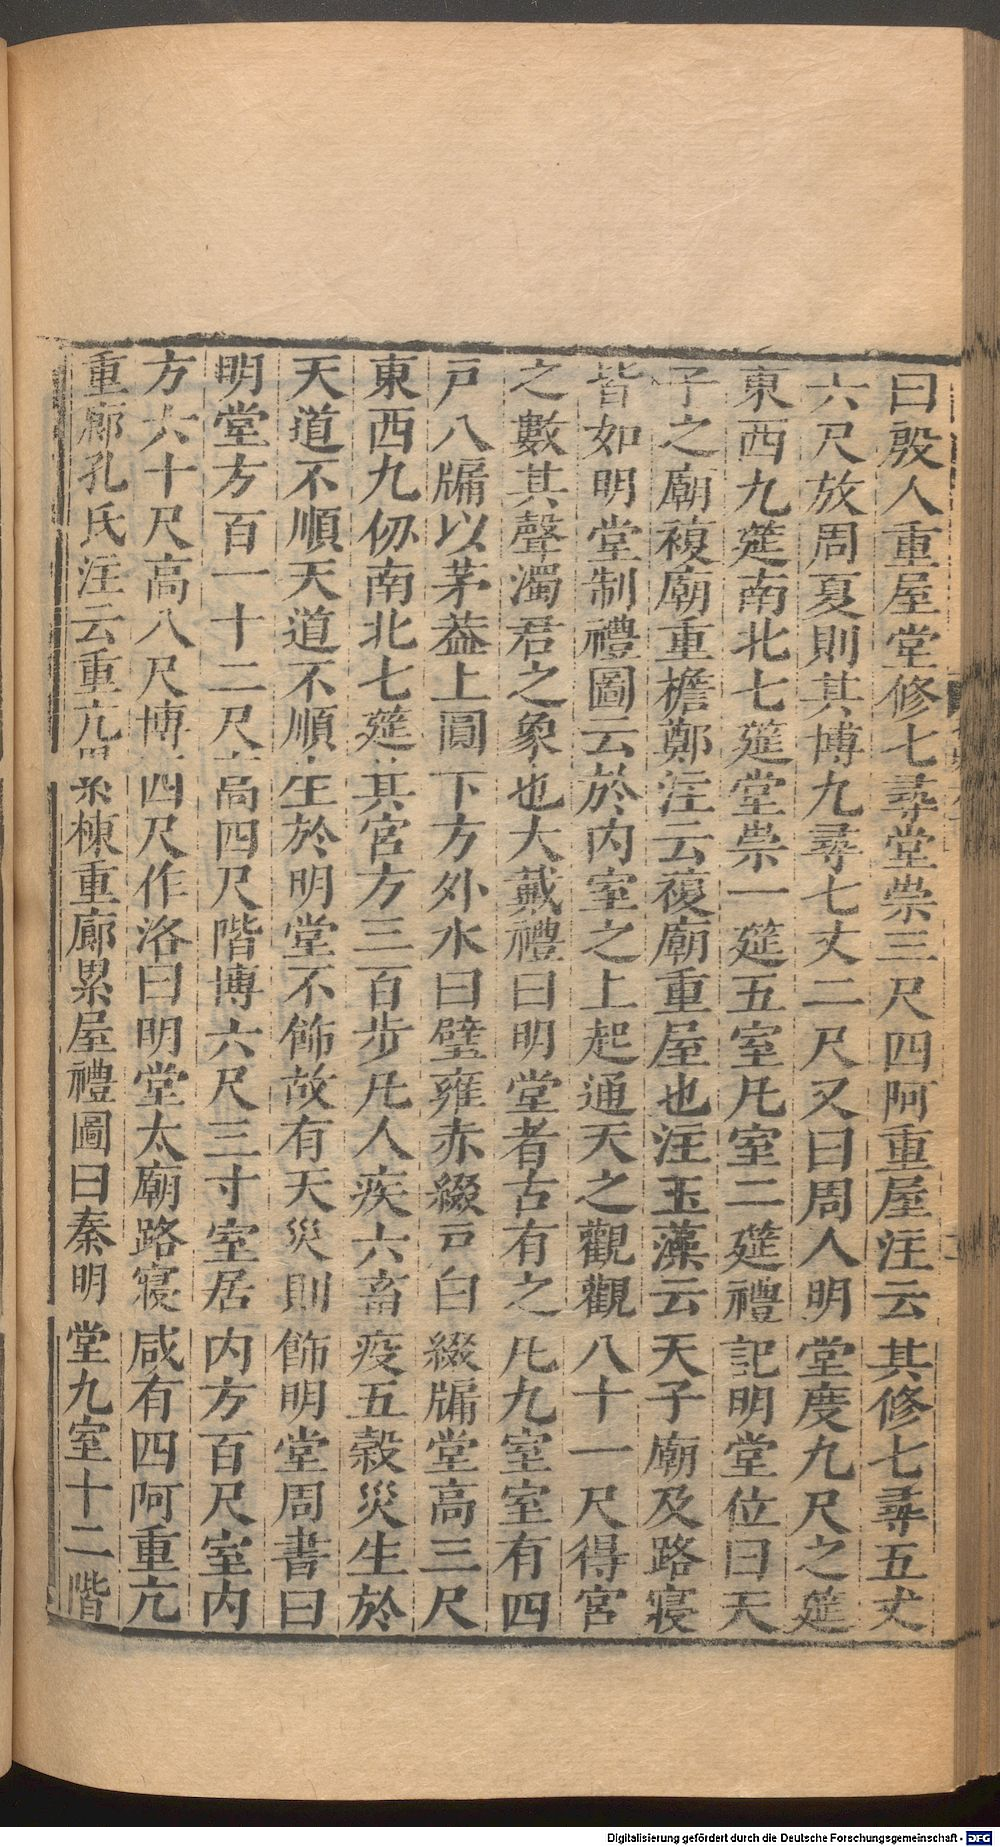 曰殷人重屋堂修七尋堂崇三尺四阿重屋注云其修七尋五丈
六尺放周夏則其博九尋七丈二尺又曰周人明堂度九尺之筵
東西九筵南北七筵堂崇一筵五室凡室二筵禮記明堂位曰天
子之廟複廟重檐鄭注云複廟重屋也注玉藻云天子廟及路寝
皆如明堂制禮圖云於内室之上起通天之觀觀八十一尺得宮
之數其聲濁君之象也大戴禮曰明堂者古有之凡九室室有四
戸八牖以茅葢上圓下方外水曰璧雍赤綴戸白綴牖堂高三尺
東西九仞南北七筵其宮方三百步凡人疾六畜疫五穀災生於
天道不順天道不順生於明堂不飾故有天災則飾明堂周書曰
明堂方百一十二尺高四尺階博六尺三寸室居内方百尺室内
方六十尺高八尺博四尺作洛曰明堂太廟路寝咸有四阿重亢
重廊孔氏注云重亢累棟重廊累屋禮圖曰秦明堂九室十二階
Digitalisierung gefördert durch die Deutsche Forschungsgemeinschaft - DFG